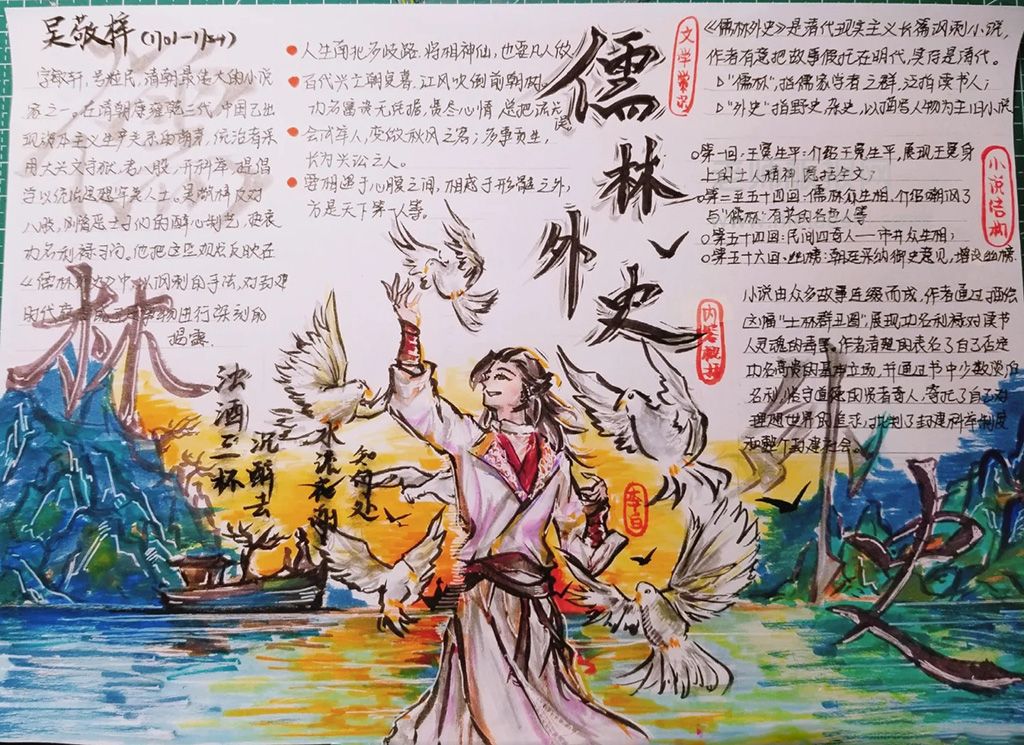 吴敬梓(1701-1754)
字敏轩,号粒民,清朝最伟大的小说
家之一。在清朝康雍乾三代,中国已出
现资本主义生产关系的萌芽,统治者采
用大兴文字狱,考八股,开科举,提倡
学以统治思想牢笼人生。吴敬梓反对
八股,
功名利禄
他把这些观点反映在
《儒林外史》中,以讽刺的手法,对
时代
物进行深刻的
揭露.
人生南北多歧路,将相神仙,也要凡人做
百代兴亡朝复暮,江风吹倒前朝树
功名富贵无凭据,费尽心情,总把流光
误
会试举人,变做秋风之客;多事贡生,
长为兴讼之人。
曾相遇于心腹之间,相感于形骸之外,
方是天下第一人等。
儒林外史
文学常识
《儒林外史》是清代现实主义长篇讽刺小说,
作者有意把故事假托在明代,实际是清代。
"儒林",指儒家学者之群,泛指读书人;
"外史"指野史,杂史,以描写人物为主旧小说
小说结构
第一回:王冕生平:介绍王冕生平,展现王冕身
上的士人精神,隐括全文;
第二至五十四回:儒林众生相,介绍嘲讽了
与"儒林"有关的名色人等
第五十四回:民间四奇人——市井众生相;
第五十六回:幽榜:朝廷采纳御史意见,增设幽榜.
内容概述
小说由众多故事连缀而成,作者通过描绘
这幅"士林群丑图",展现功名利禄对读书
人灵魂的毒害。作者清楚的表名了自己否定
功名富贵的基本立场,并通过书中少数淡泊
名利,恪守道德的贤者奇人,寄托了自己对
理想世界的追求,批判了封建科举制度
和整个封建社会。
浊酒三杯
沉醉去
水流花谢
知何处
李白
林
外
史